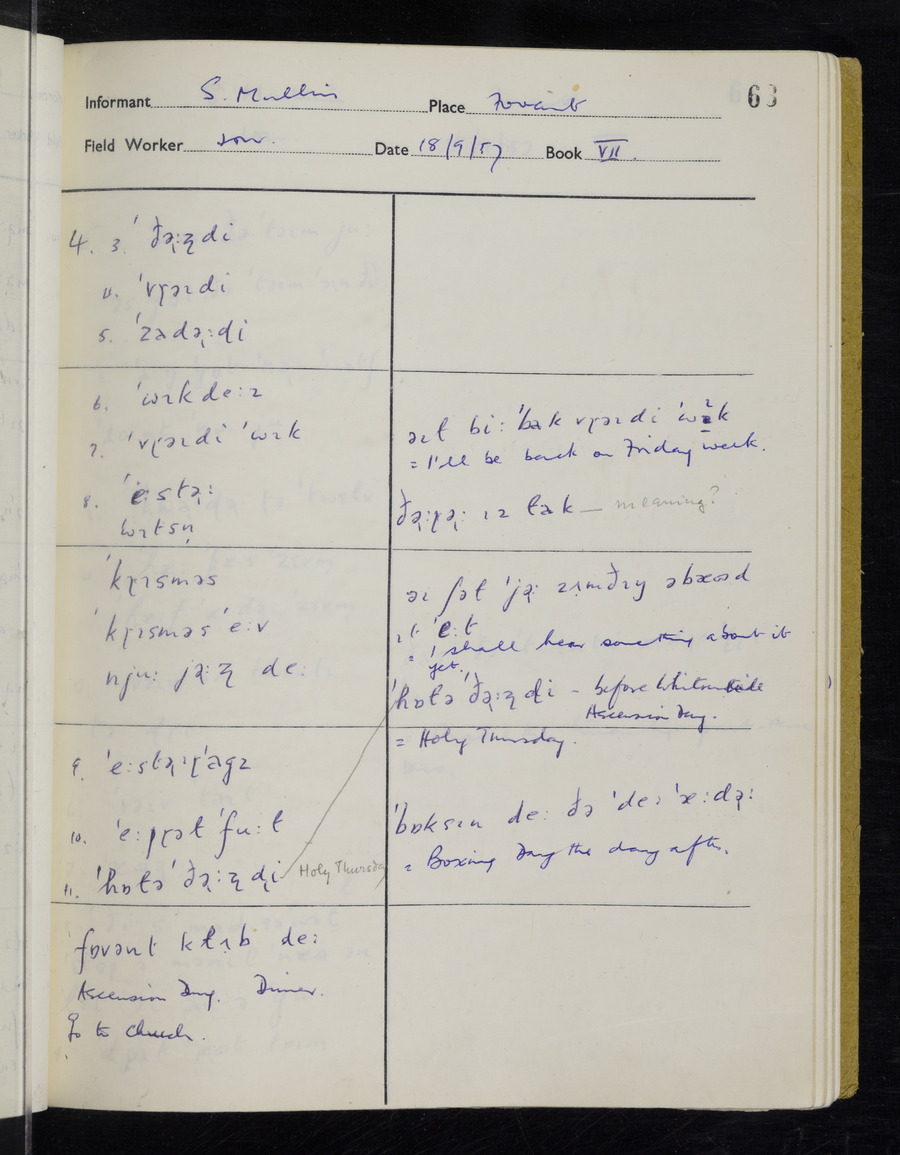 Informant S. Mullins Place Fovant 63
Field Worker Date 18/9/57 Book VII.
4. 3. ˈðə̣ːʐdi
4. ˈvɽəɪdi
5. ˈzadə̣ːdi
6. ˈwɪkdeːɪ
7. ˈvɽəɪdi ˈwɪk
8. ˈeːstə̣ː
wɪtsn̩
ˈkɽɪsməs
ˈkɽɪsməs ˈeːv
njuː jə̣ːʐ deː
9. ˈeːstə̣ːɽˈagz
10. ˈeːpɽət ˈfuːt
11. ˈhɒɫə ˈðə̣ːʐdi Holy Thursday
fɒvənt kɫʌb deː
Ascension Day. Dinner.
Go to church.
əɪɫ biː ˈbak vɽəɪdi ˈwɪk
= I'll be back on Friday week.
meaning?
= I shall hear something about it
yet.
ˈhɒɫə ˈðə̣ːʐdi – before Whitsuntide
Ascension Day.
= Holy Thursday.
ˈbɒksɪn deː ðə ˈdeː ˈæːdə̣ː
= Boxing Day the day after.